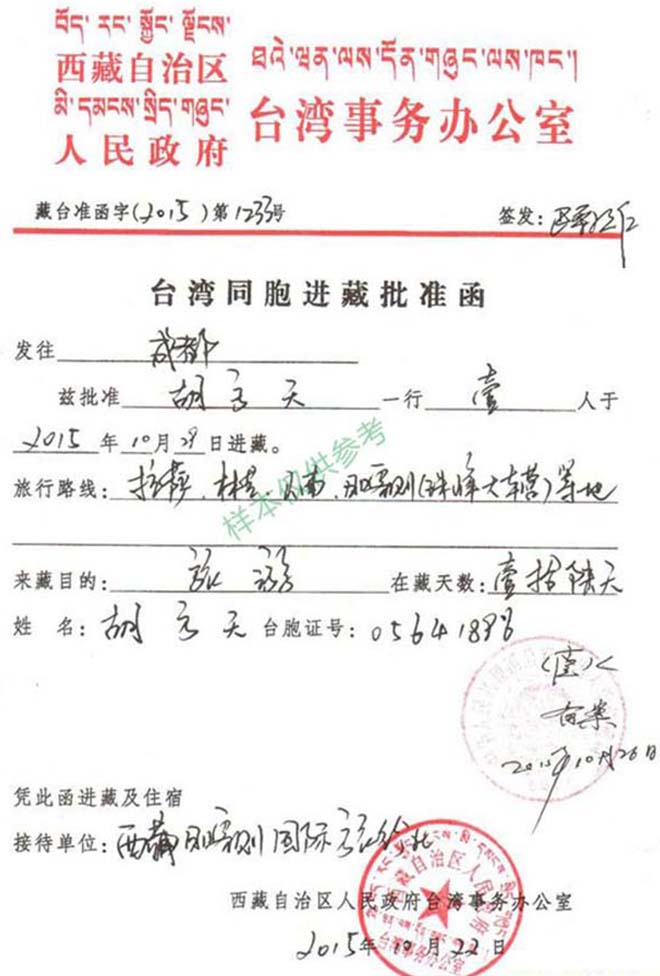 བོད་རང་སྐྱོང་ལྗོངས་
西藏自治区
མི་དམངས་སྲིད་གཞུང་
人民政府
ཐའེ་ཝན་ལས་དོན་གཞུང་ལས་ཁང་།
台湾事务办公室
藏台准函字(2015)第1233号
签发:
台湾同胞进藏批准函
发往 成都
兹批准 胡 天 一行 壹 人于
2015 年 10 月 29 日进藏。
旅行路线: 拉萨、林芝、山南、日喀则(珠峰大本营)等地
样本仅供参考
来藏目的: 旅游 在藏天数: 壹拾陆天
姓 名: 胡 天 台胞证号: 05641898
(壹)人
备案
2015年10月26日
凭此函进藏及住宿
接待单位: 西藏日喀则国际旅行社
西藏自治区人民政府台湾事务办公室
2015年 10月 22日
西藏自治区人民政府
台湾事务办公室